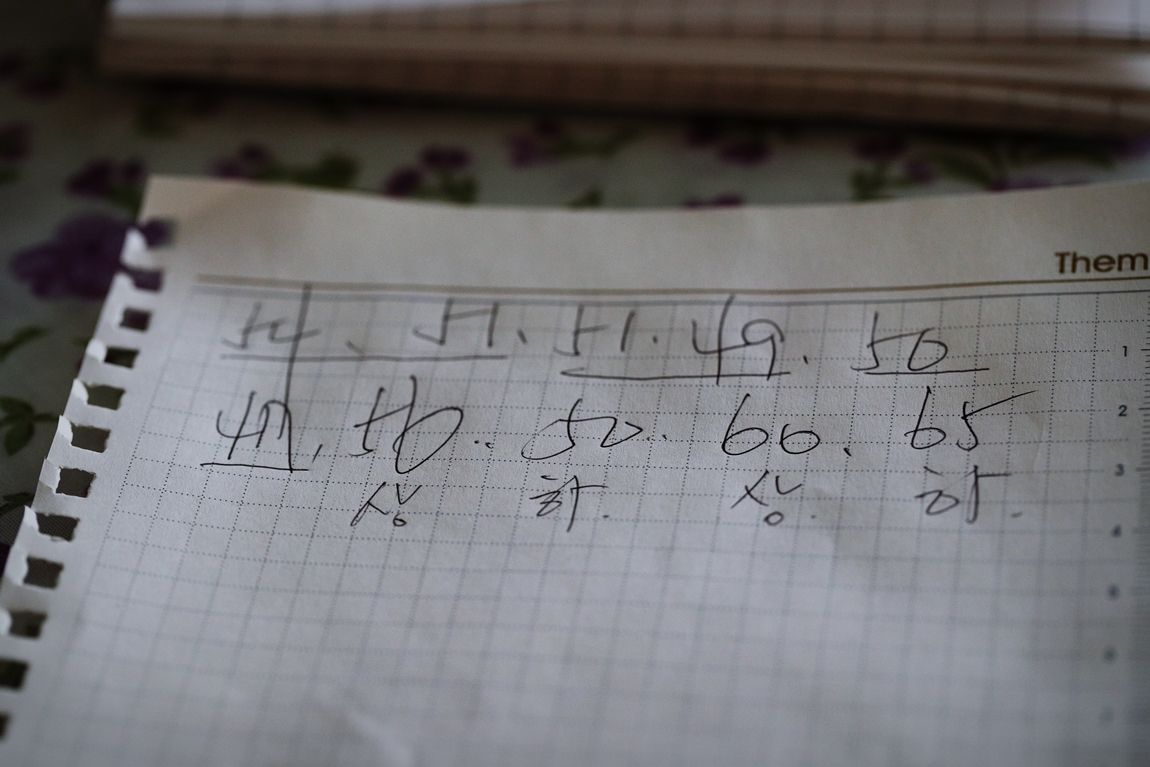 Them
54、51、51.49.50
49, 50.. 52.. 60. 65
하. 하.
1
2
3
4